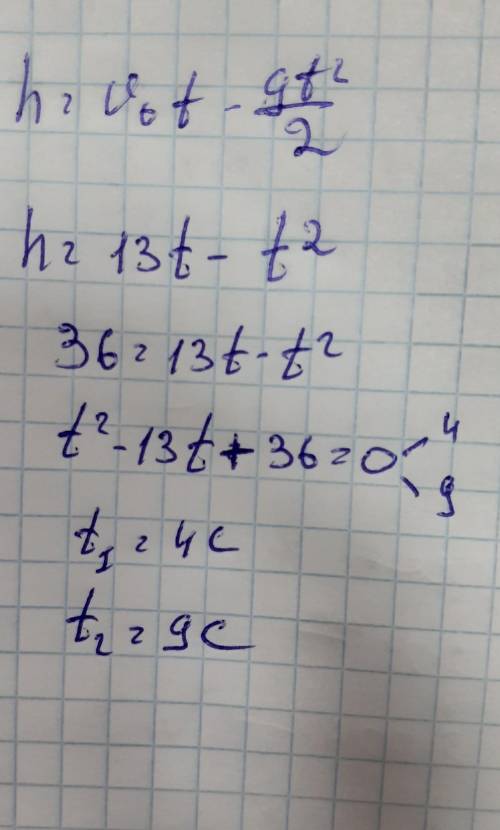 h = v₀t - gt²/2
h = 13t - t²
36 = 13t - t²
t² - 13t + 36 = 0 < 4 9
t₁ = 4c
t₂ = 9c